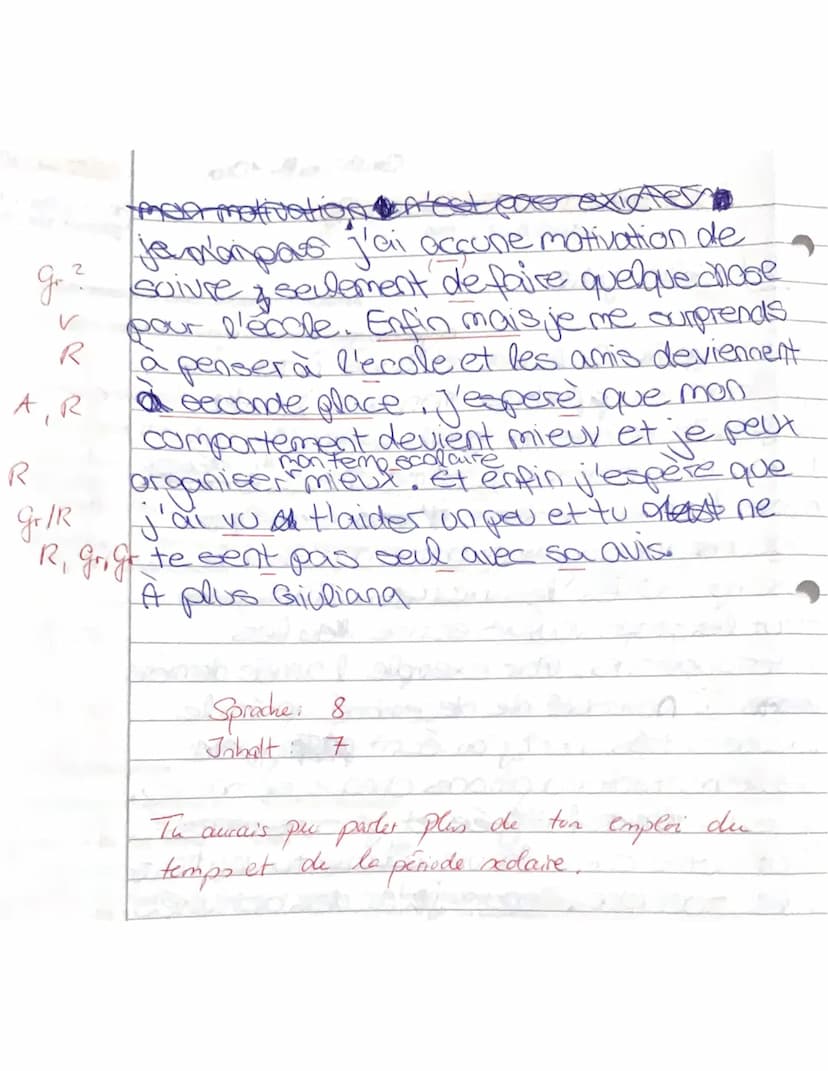 j'ai accune motivation de
Gr ? soivre seulement de faire quelque chose
V pour l'école. Enfin mais je me surprends
R à penser à l'ecole et les amis deviennent
A, R à seconde place. j'esperè que mon
comportement devient mieux et je peux
mon temp scolaire
R organiser mieux. Et enfin j'espère que
Gr/R j'ai vu t'laider un peu et tu ne
R, Gr, Gr te sent pas seul avec sa avis.
À plus Giuliana
Sprache: 8
Inhalt: 7
Tu aurais pu parler plus de ton emploi du
temps et de la période scolaire.